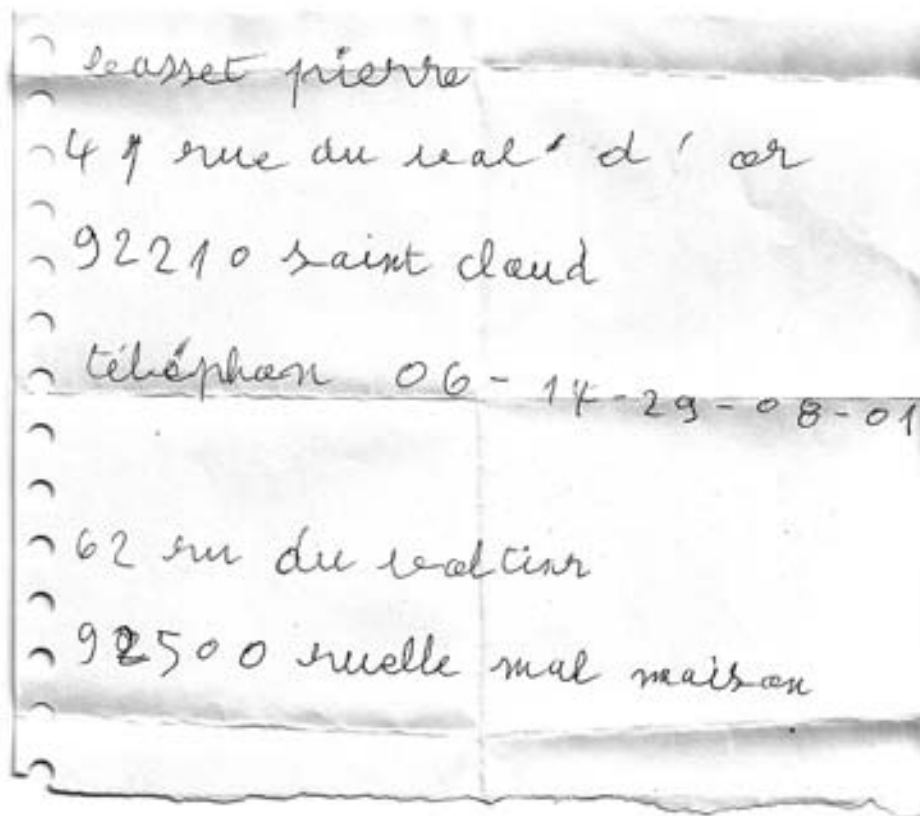 basset pierre
41 rue du val' d' or
92210 saint cloud
téléphon 06-14-29-08-01
62 ru du valtinr
92500 ruelle mal maison